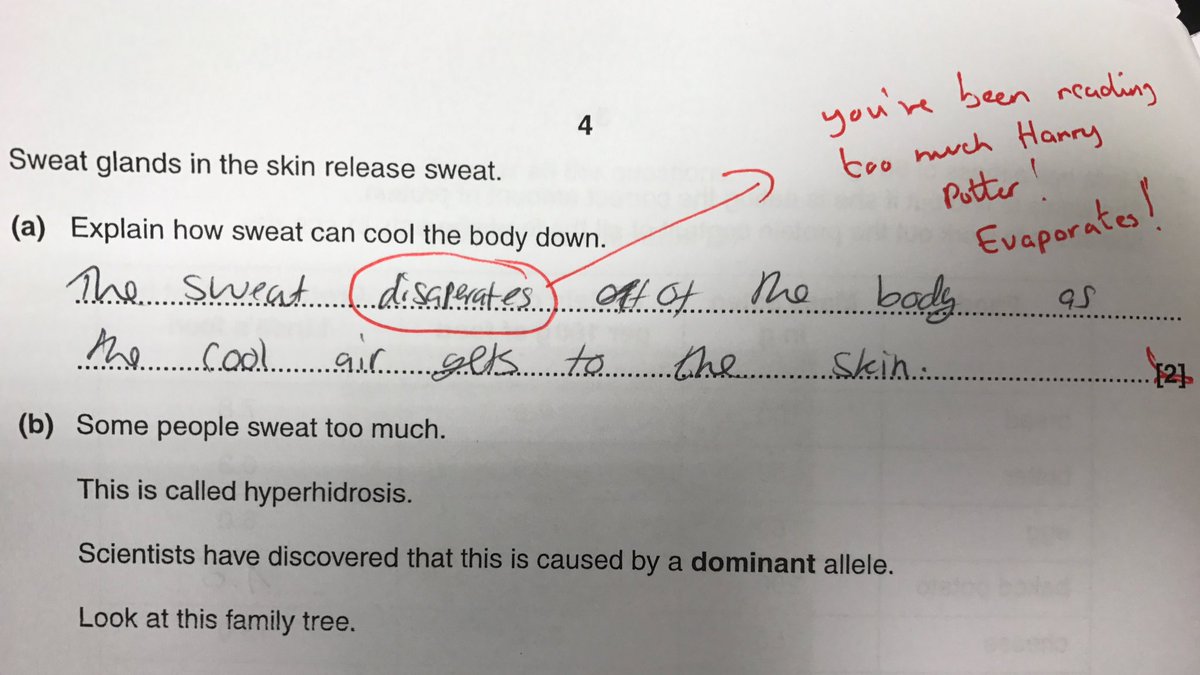 you've been reading
too much Harry
Potter!
Evaporates!
4
Sweat glands in the skin release sweat.
(a) Explain how sweat can cool the body down.
The sweat disaperates off of the body as
the cool air gets to the skin.
[2]
(b) Some people sweat too much.
This is called hyperhidrosis.
Scientists have discovered that this is caused by a dominant allele.
Look at this family tree.